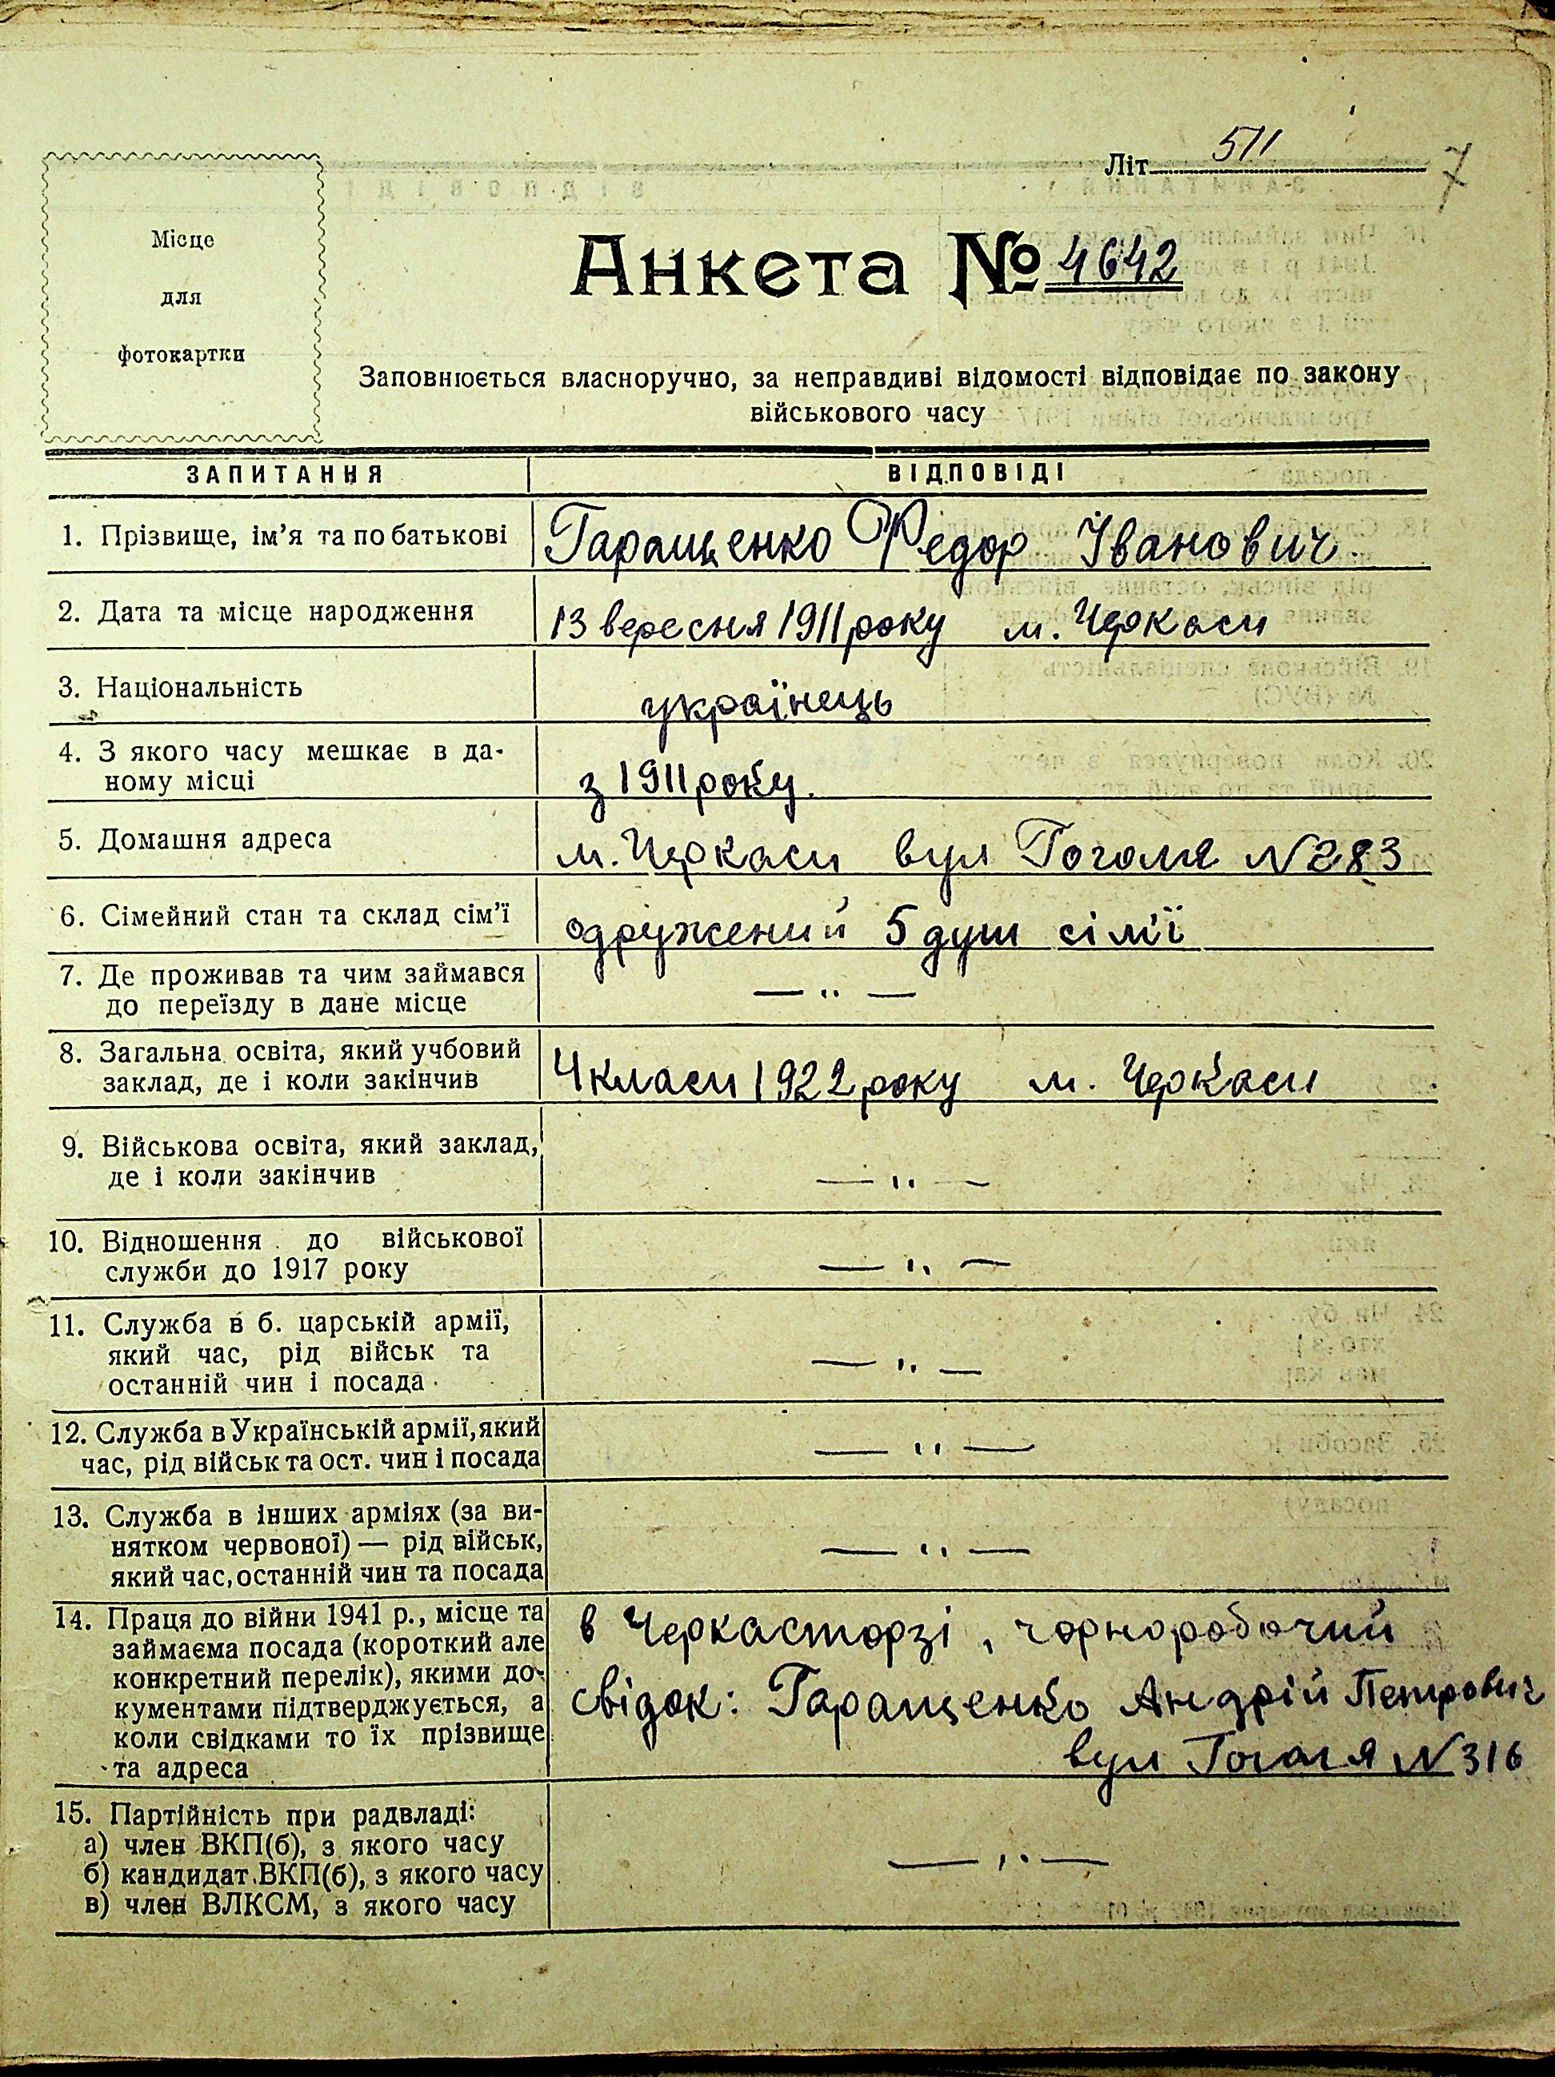 Літ 511
7
Місце
для
фотокартки
Анкета № 4642
Заповнюється власноручно, за неправдиві відомості відповідає по закону
військового часу
ЗАПИТАННЯ ВІДПОВІДІ
1. Прізвище, ім'я та по батькові Гаращенко Федор Іванович.
2. Дата та місце народження 13 вересня 1911 року м. Черкаси
3. Національність українець
4. З якого часу мешкає в да-
ному місці з 1911 року.
5. Домашня адреса м. Черкаси вул Гоголя N 283
6. Сімейний стан та склад сім'ї одружений 5 душ сім'ї
7. Де проживав та чим займався
до переїзду в дане місце — " —
8. Загальна освіта, який учбовий
заклад, де і коли закінчив 4 класи 1922 року м. Черкаси
9. Військова освіта, який заклад,
де і коли закінчив — " —
10. Відношення до військової
служби до 1917 року — " —
11. Служба в б. царській армії,
який час, рід військ та
останній чин і посада — " —
12. Служба в Українській армії, який
час, рід військ та ост. чин і посада — " —
13. Служба в інших арміях (за ви-
нятком червоної) — рід військ,
який час, останній чин та посада — " —
14. Праця до війни 1941 р., місце та
займаєма посада (короткий але
конкретний перелік), якими до-
кументами підтверджується, а
коли свідками то їх прізвище
та адреса
в Черкасторзі, чорноробочий
свідок: Гаращенко Андрій Петрович
вул Гоголя N 316
15. Партійність при радвладі:
а) член ВКП(б), з якого часу
б) кандидат ВКП(б), з якого часу — " —
в) член ВЛКСМ, з якого часу